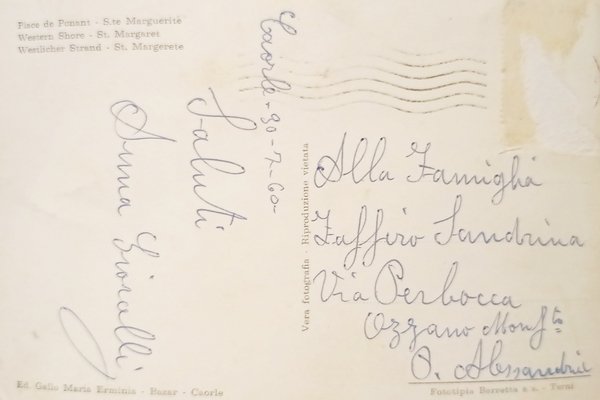 Place de Ponant - S.te Marguérite
Western Shore - St. Margaret
Westlicher Strand - St. Margerete
Caorle - 30-7-60-
Saluti
Anna
Vera fotografia - Riproduzione vietata
Alla Famiglia
Zaffiro Sandrina
Via Perbocca
Ozzano Monf.to
P. Alessandria
Ed. Gallo Maria Erminia - Bazar - Caorle
Fototipia Berretta s.a. - Terni